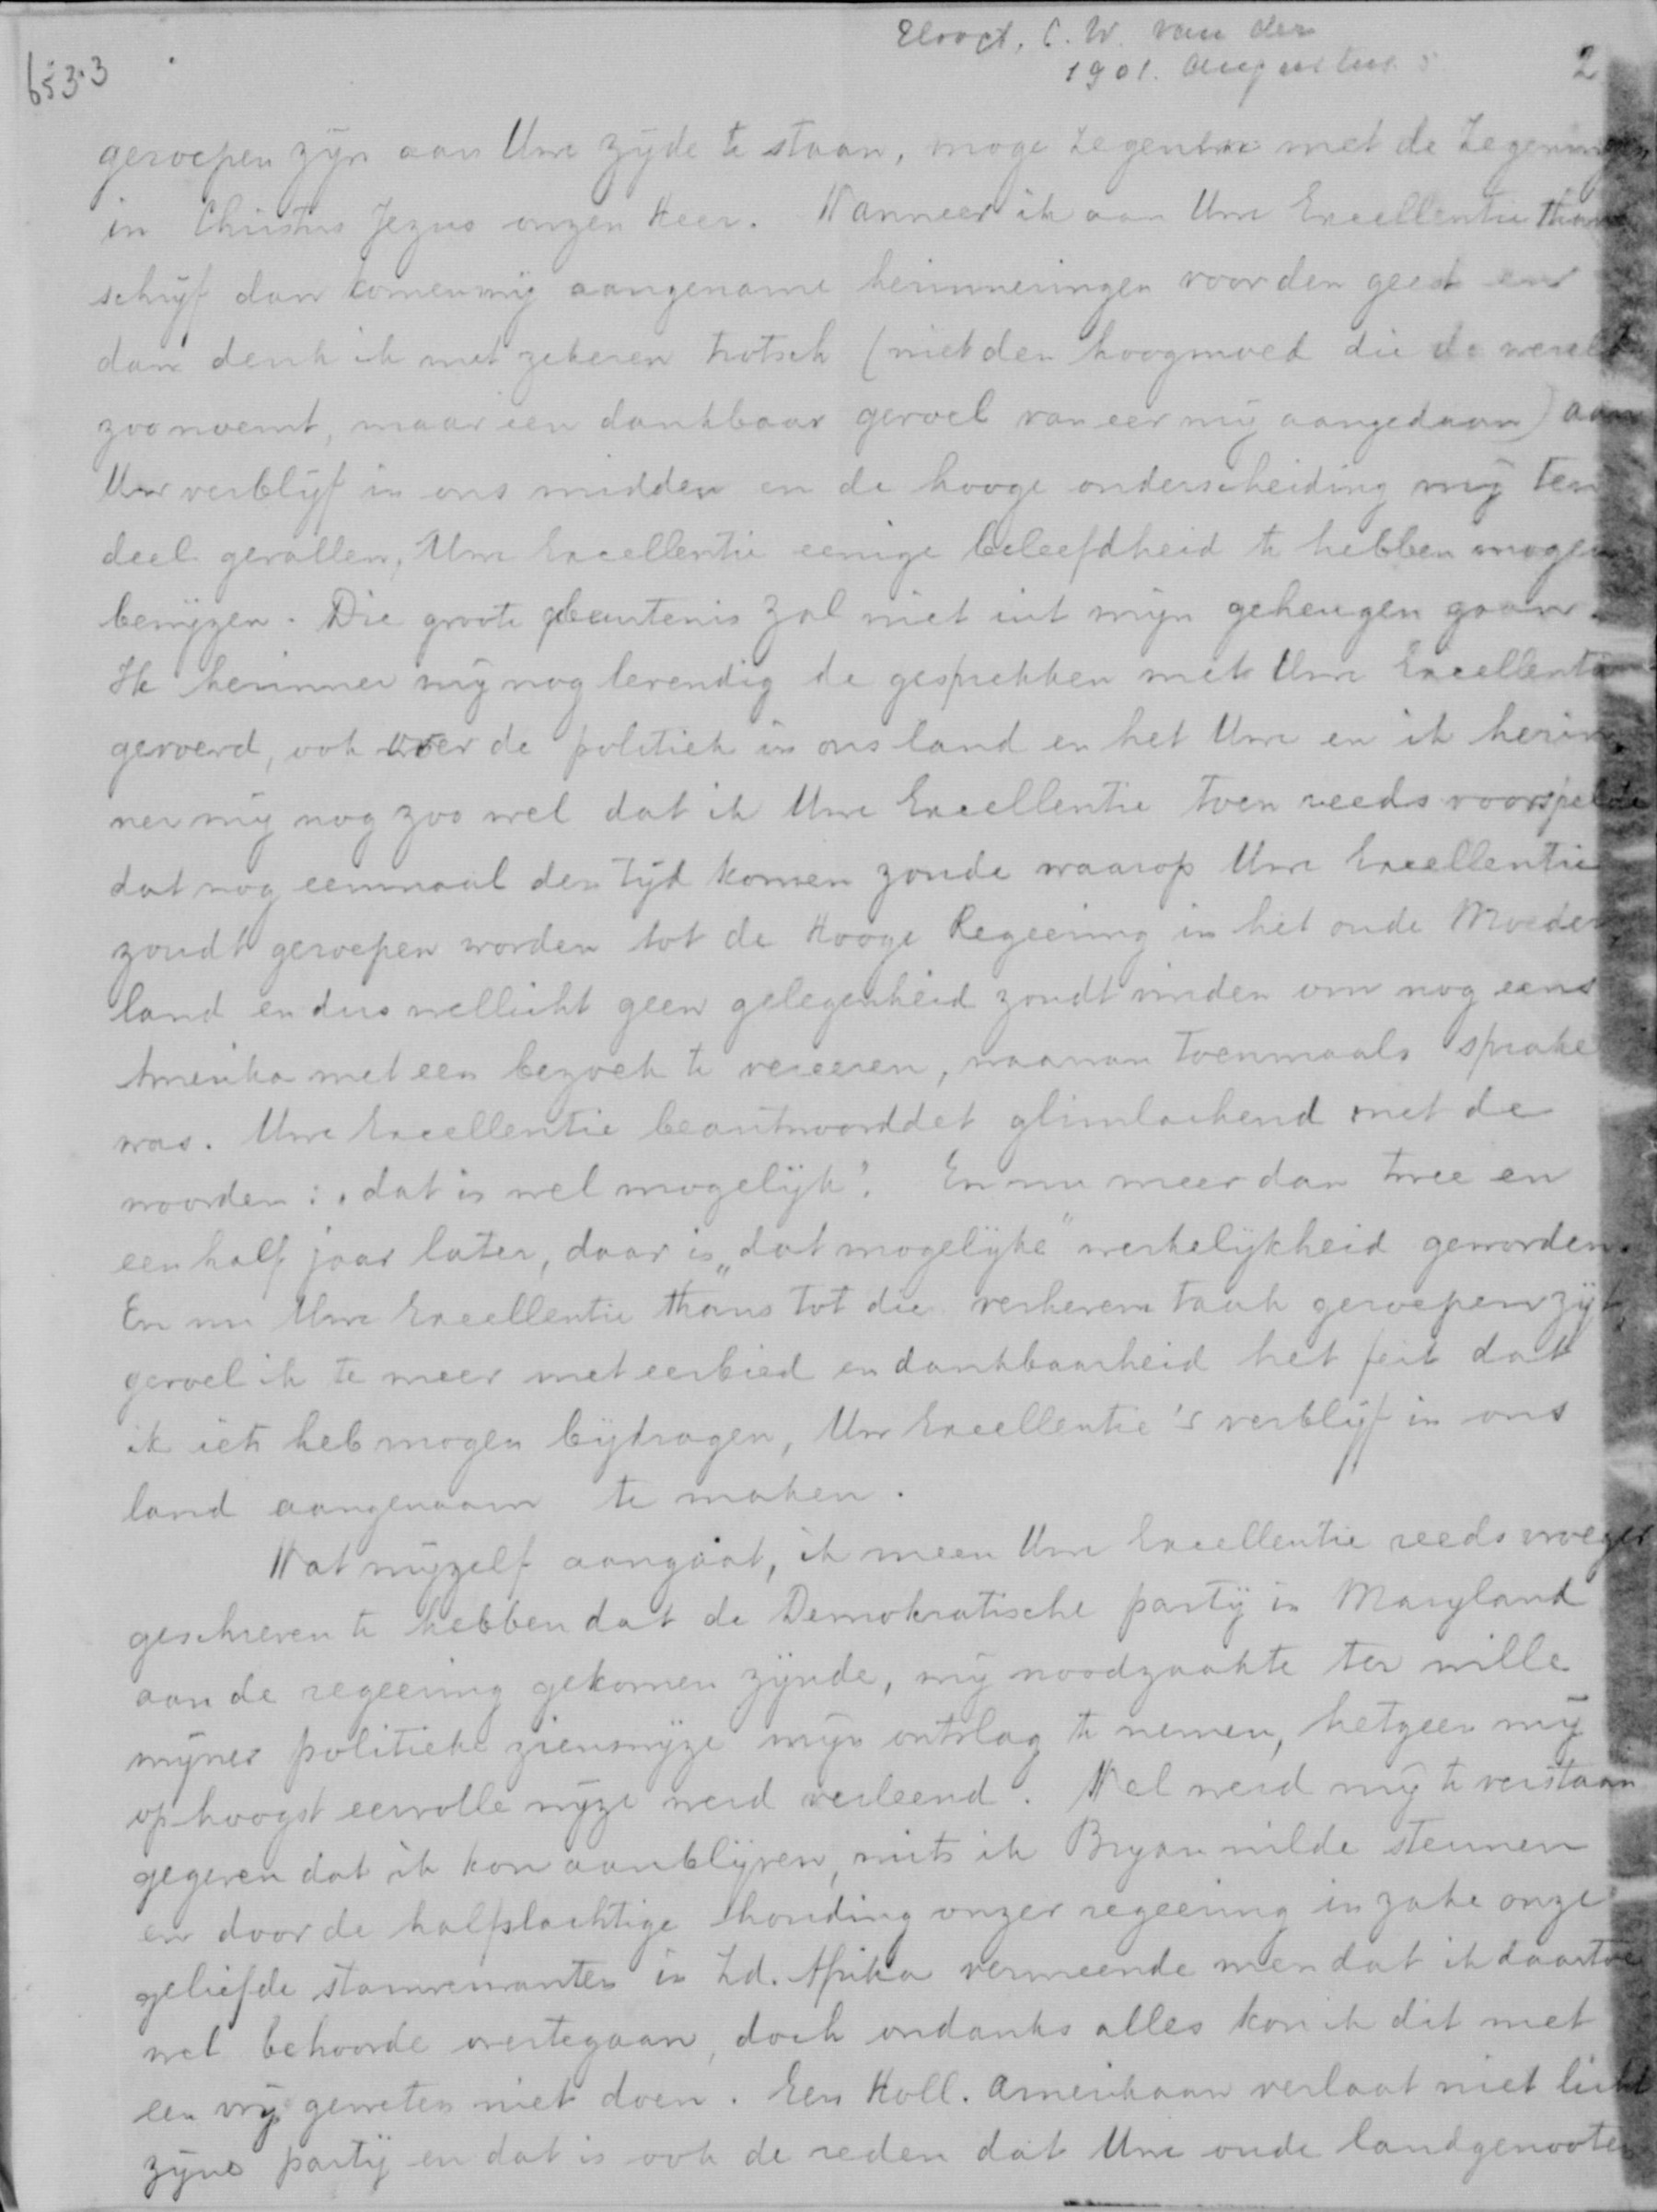 Hoogt, C. W. van der
1901. Augustus 5
6533
2
geroepen zijn aan Uwe zijde te staan, moge zegenen met de Zegeningen
in Christus Jezus onzen Heer. Wanneer ik aan Uwe Excellentie thans
schrijf dan komen mij aangename herinneringen voor den geest en
dan denk ik met zekeren trotsch (niet den hoogmoed die de wereld
zoo noemt, maar een dankbaar gevoel van eer mij aangedaan) aan
Uw verblijf in ons midden en de hooge onderscheiding mij ten
deel gevallen, Uwe Excellentie eenige beleefdheid te hebben mogen
bewijzen. Die groote gebeurtenis zal niet uit mijn geheugen gaan.
Ik herinner mij nog levendig de gesprekken met Uwe Excellentie
gevoerd, ook over de politiek in ons land en het Uwe en ik herin-
ner mij nog zoo wel dat ik Uwe Excellentie toen reeds voorspelde
dat nog eenmaal den tijd komen zoude waarop Uwe Excellentie
zoudt geroepen worden tot de Hooge Regeering in het oude Moeder
land en dus wellicht geen gelegenheid zoudt vinden om nog eens
Amerika met een bezoek te vereeren, waarvan toenmaals sprake
was. Uwe Excellentie beantwoorddet glimlachend met de
woorden: „dat is wel mogelijk". En nu meer dan twee en
een half jaar later, daar is „dat mogelijke" werkelijkheid geworden.
En nu Uwe Excellentie thans tot die verheven taak geroepen zijt,
gevoel ik te meer met eerbied en dankbaarheid het feit dat
ik iets heb mogen bijdragen, Uw Excellentie's verblijf in ons
land aangenaam te maken.
Wat mijzelf aangaat, ik meen Uwe Excellentie reeds vroeger
geschreven te hebben dat de Demokratische partij in Maryland
aan de regeering gekomen zijnde, mij noodzaakte ter wille
mijner politieke zienswijze mijn ontslag te nemen, hetgeen mij
op hoogst eervolle wijze werd verleend. Wel werd mij te verstaan
gegeven dat ik kon aanblijven, mits ik Bryan wilde steunen
en door de halfslachtige houding onzer regeering in zake onze
geliefde stamverwanten in Zd. Afrika vermeende men dat ik daartoe
wel behoorde overtegaan, doch ondanks alles kon ik dit met
een vrij geweten niet doen. Een Holl. Amerikaan verlaat niet licht
zijne partij en dat is ook de reden dat Uwe oude landgenooten